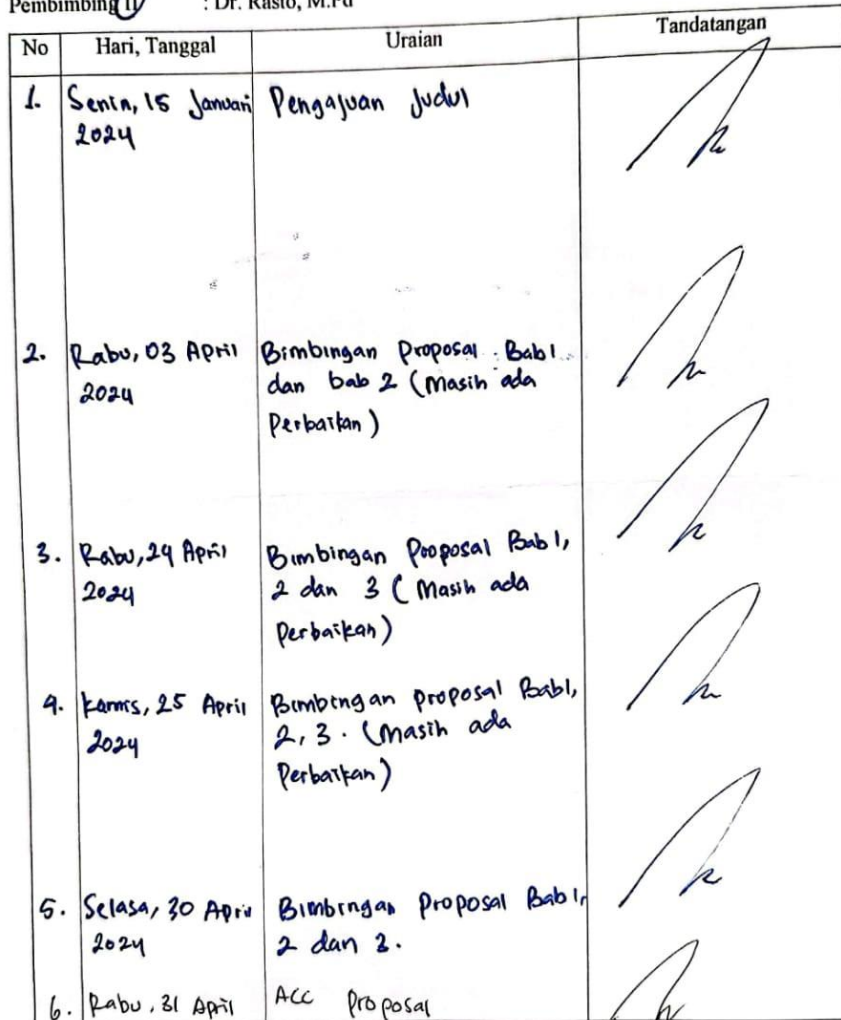 Pembimbing II : Dr. Rasto, M.Pd
No Hari, Tanggal Uraian Tandatangan
1. Senin, 15 Januari Pengajuan Judul
2024
2. Rabu, 03 April Bimbingan Proposal Bab 1
2024 dan bab 2 (Masih ada
Perbaikan)
3. Rabu, 24 April Bimbingan Proposal Bab 1,
2024 2 dan 3 (Masih ada
Perbaikan)
4. Kamis, 25 April Bimbingan proposal Bab 1,
2024 2, 3. (Masih ada
Perbaikan)
5. Selasa, 30 April Bimbingan Proposal Bab 1,
2024 2 dan 3.
6. Rabu, 31 April ACC Proposal